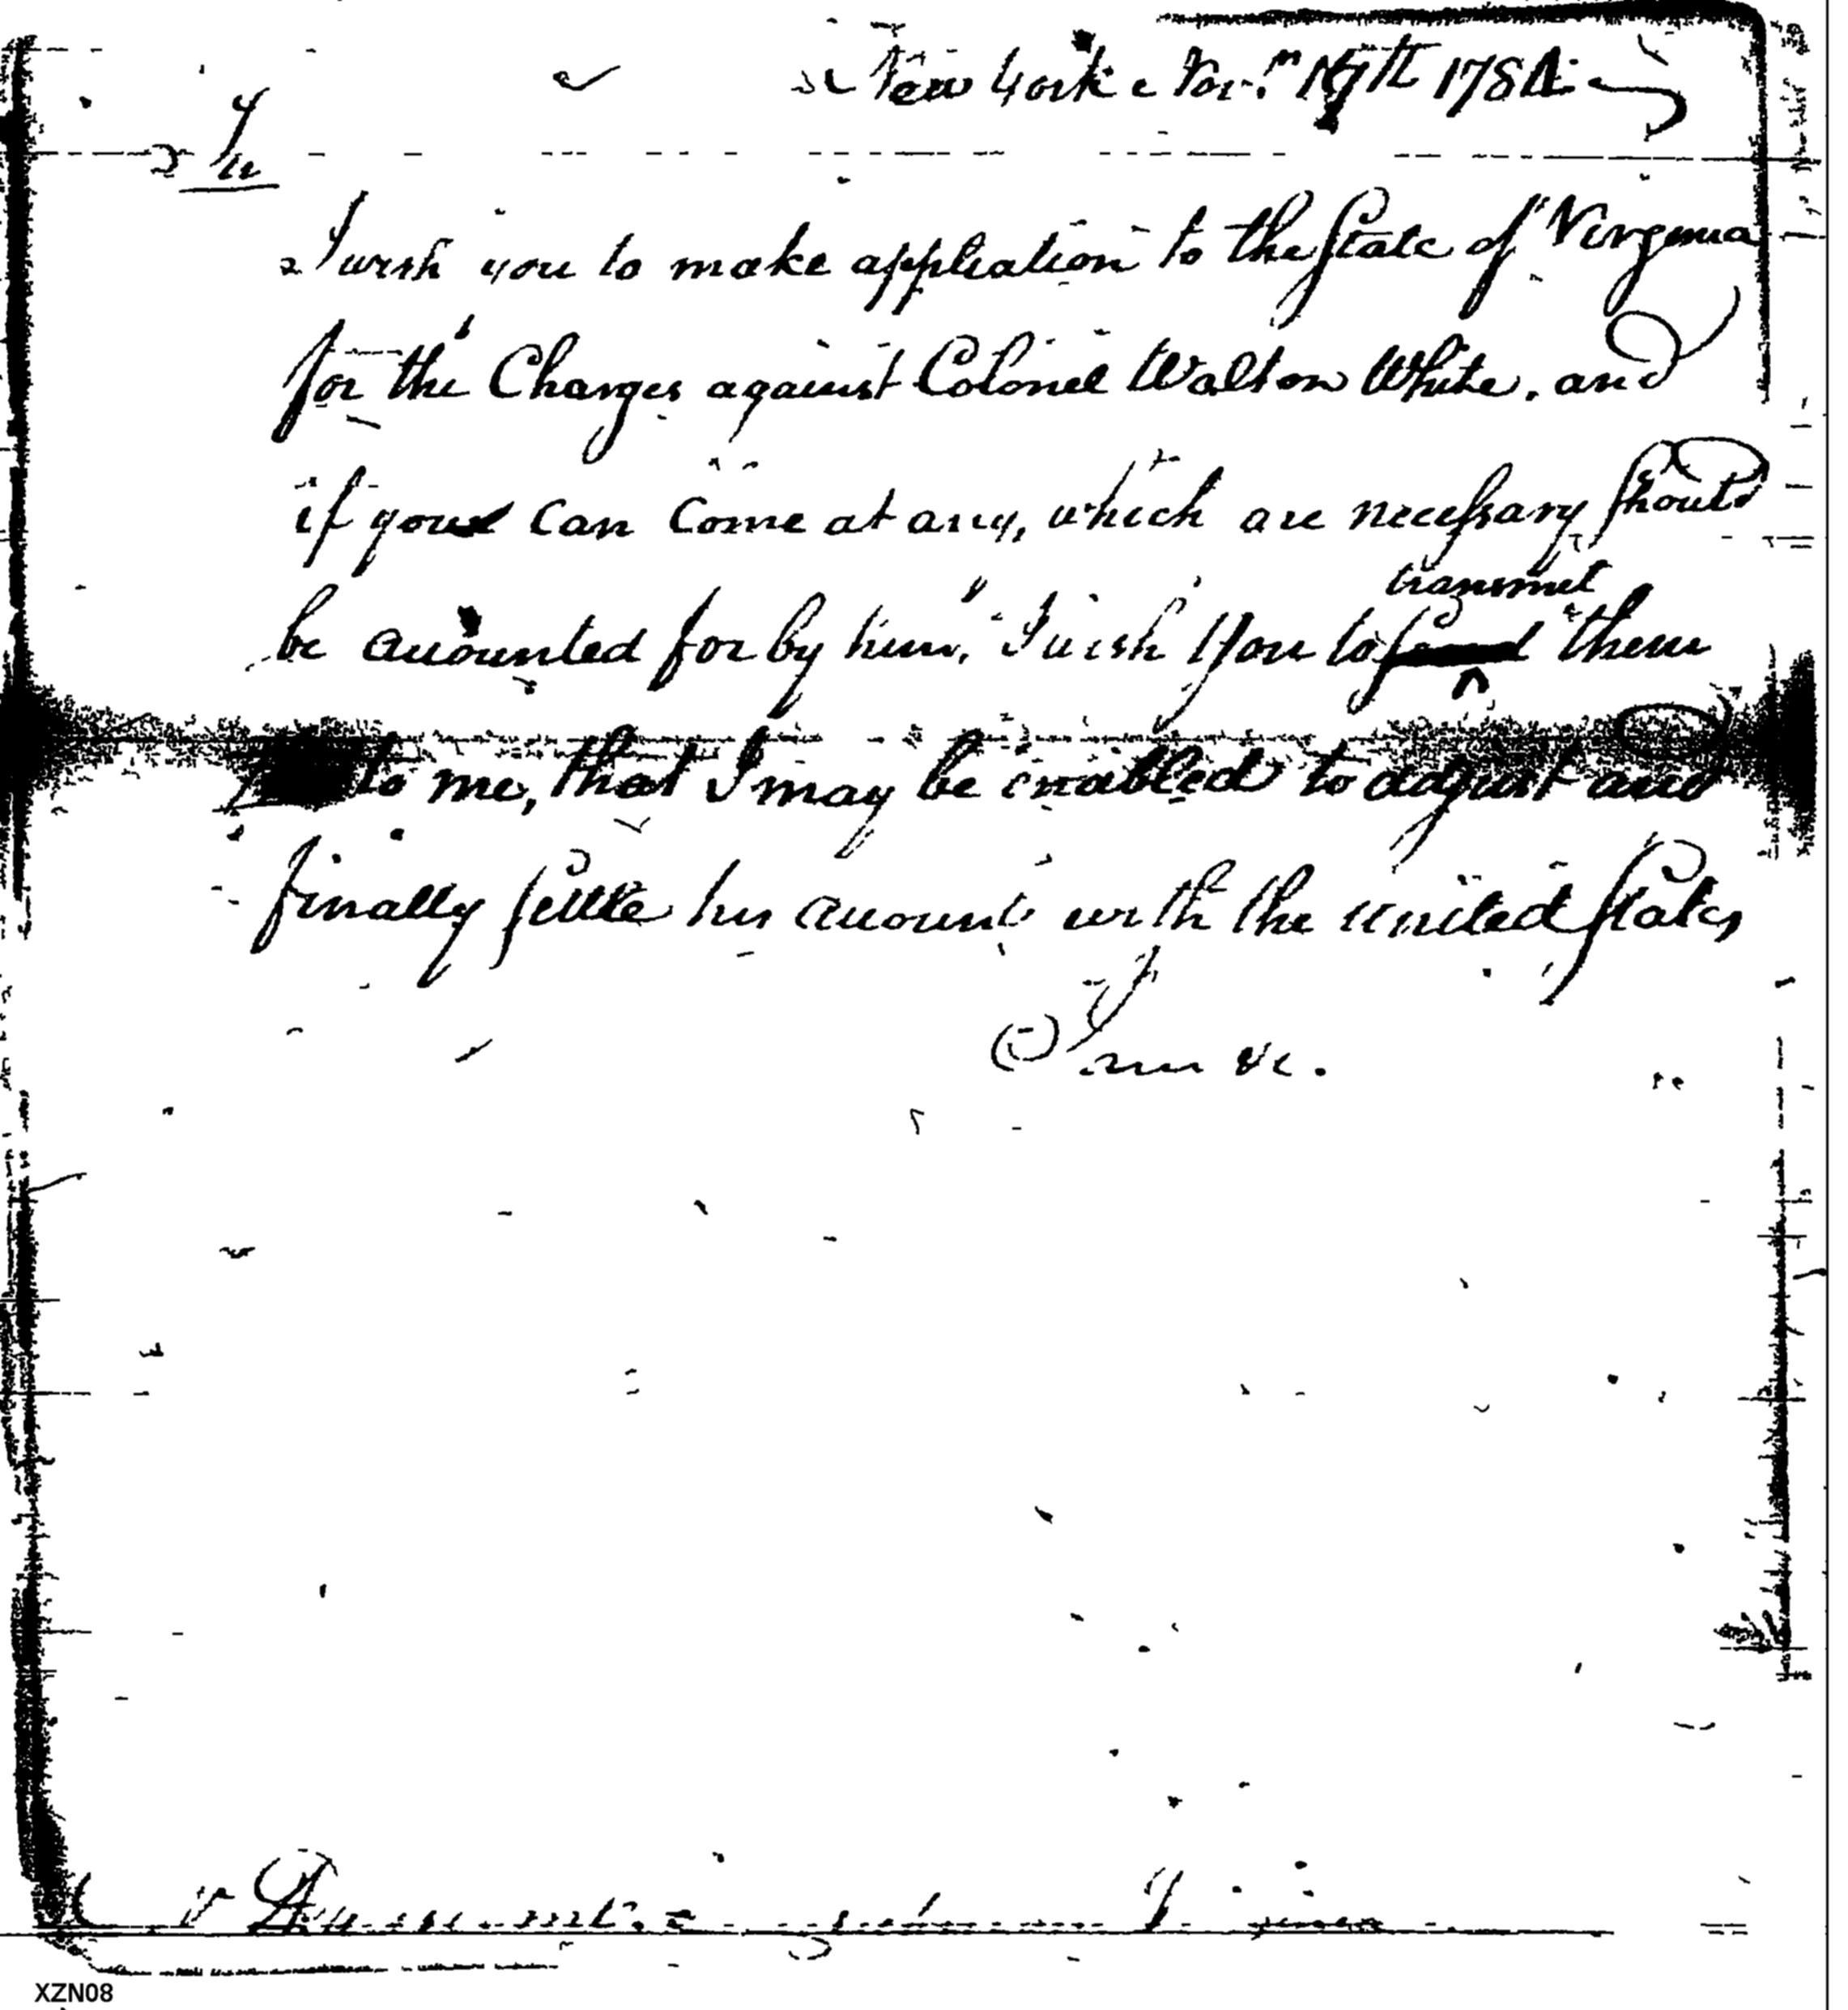 New York Novr. 19th 178
Sir
I wish you to make application to the State of Virginia
for the Charges against Colonel Walton White, and
if you can come at any, which are necessary should
be accounted for by him, I wish you to transmit them
to me, that I may be enabled to adjust and
finally settle his accounts with the United States
I am &c.
XZN08